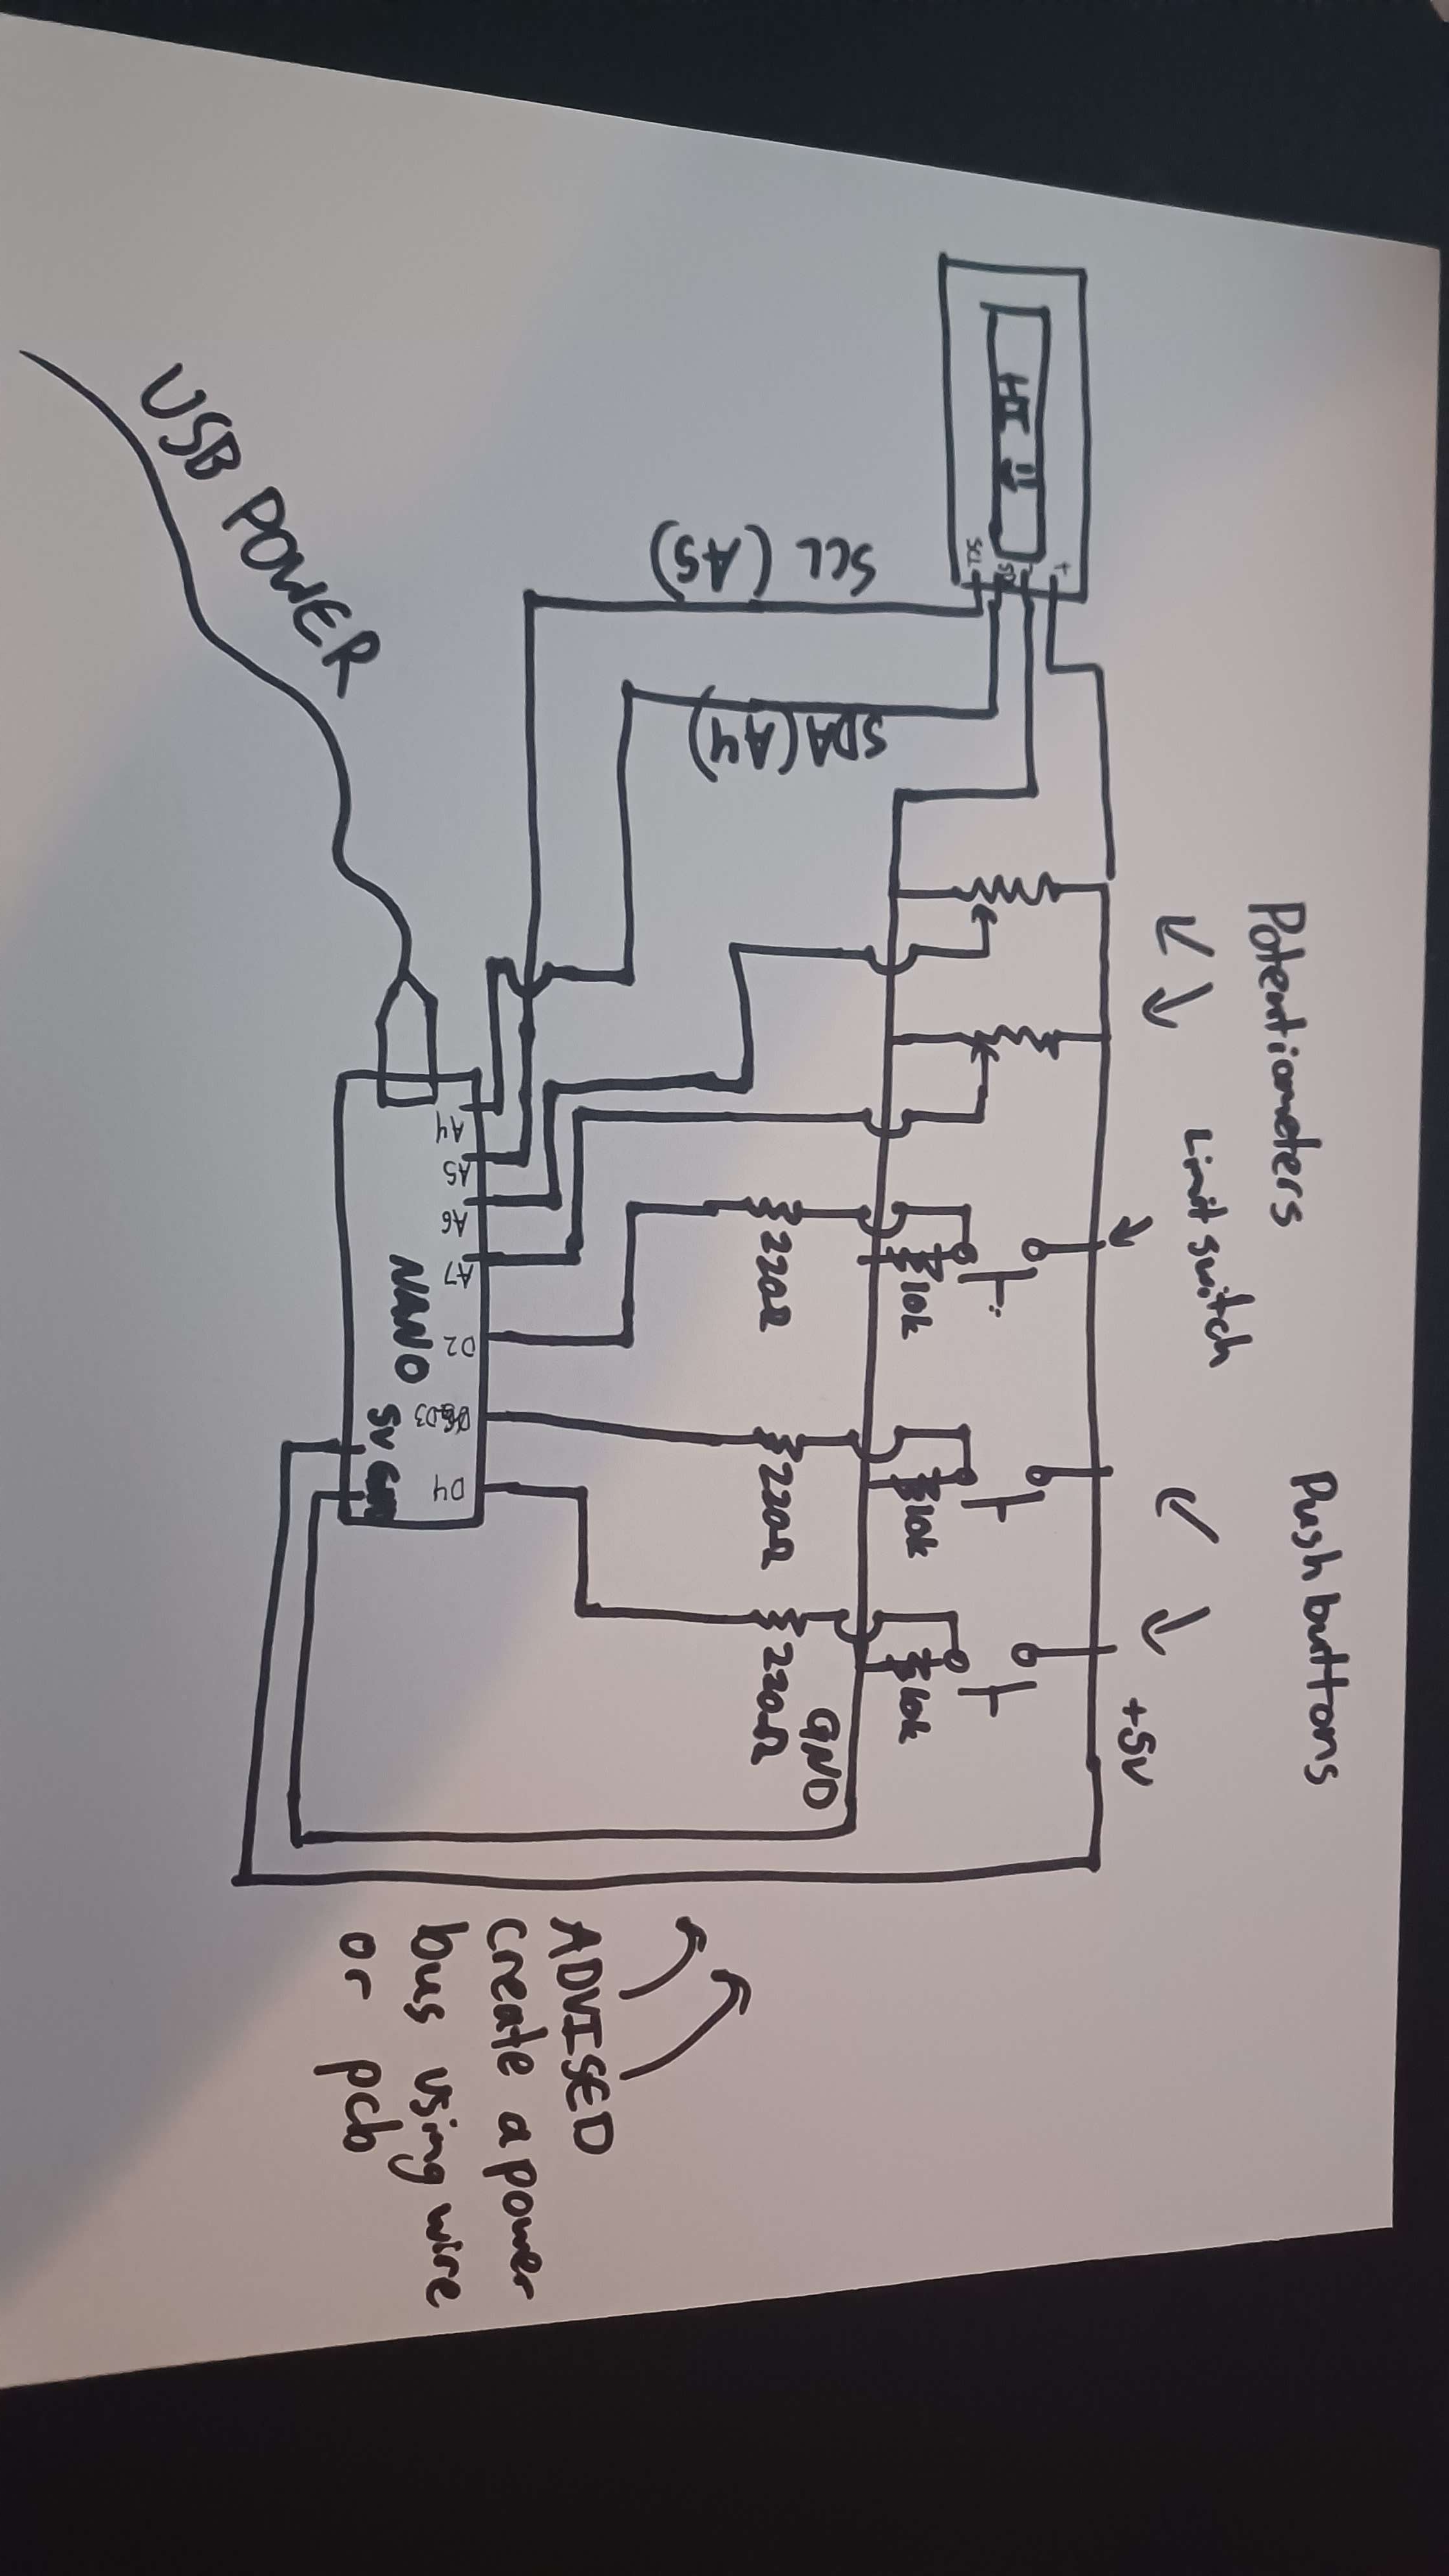 Potentiometers
Limit switch
Push buttons
+5V
HI
+
-
SCL
SCL (A5)
SDA (A4)
10k
10k
10k
220Ω
220Ω
220Ω
GND
USB POWER
A4
A5
A6
A7
D2
D3
D4
NANO
5V
ADVISED
create a power
bus using wire
or pcb